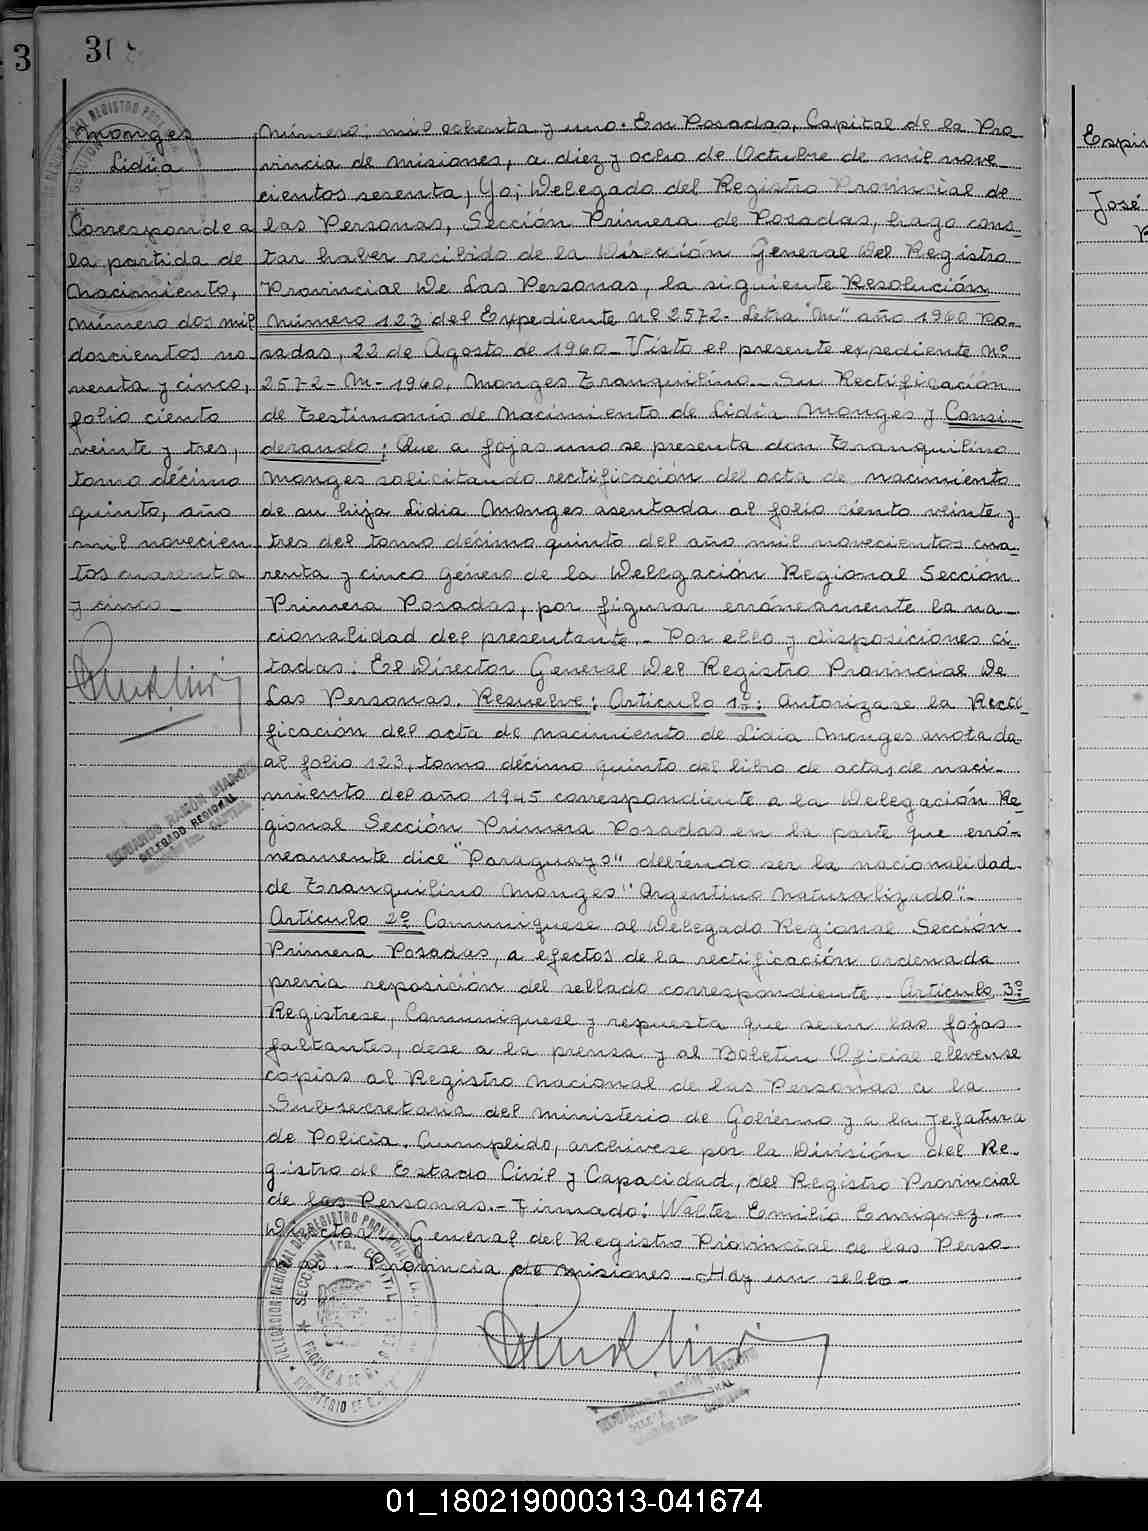 3
308
Monges
Lidia
Corresponde a
la partida de
Nacimiento,
número dos mil
doscientos no-
venta y cinco,
folio ciento
veinte y tres,
tomo décimo
quinto, año
mil novecien
tos cuarenta
y cinco_
Número; mil ochenta y uno. En Posadas, Capital de la Pro-
vincia de Misiones, a diez y ocho de Octubre de mil nove_
cientos sesenta, Yo; Delegado del Registro Provincial de
las Personas, Sección Primera de Posadas, hago cons_
tar haber recibido de la Dirección General Del Registro
Provincial De Las Personas, la siguiente Resolución
Número 123 del Expediente Nº 2572- Letra "M" año 1960 Po-
sadas, 22 de Agosto de 1960_ Visto el presente expediente Nº
2572-M-1960, Monges Tranquilino_ Su Rectificación
de Testimonio de Nacimiento de Lidia Monges y Consi_
derando; Que a fojas uno se presenta don Tranquilino
Monges solicitando rectificación del acta de nacimiento
de su hija Lidia Monges asentada al folio ciento veinte y
tres del tomo décimo quinto del año mil novecientos cua_
renta y cinco Género de la Delegación Regional Sección
Primera Posadas, por figurar erróneamente la na_
cionalidad del presentante._ Por ello y disposiciones ci_
tadas: El Director General Del Registro Provincial De
Las Personas. Resuelve; Artículo 1º: Autorízase la Recti_
ficación del acta de nacimiento de Lidia Monges anotada
al folio 123, tomo décimo quinto del libro de actas de naci_
miento del año 1945 correspondiente a la Delegación Re
gional Sección Primera Posadas en la parte que erró-
neamente dice "Paraguayo" debiendo ser la nacionalidad
de Tranquilino Monges "Argentino Naturalizado"._
Artículo 2º Comuníquese al Delegado Regional Sección
Primera Posadas, a efectos de la rectificación ordenada
previa reposición del sellado correspondiente._ Artículo 3º
Regístrese, Comuníquese y repuesta que sean las fojas
faltantes, dese a la prensa y al Boletín Oficial elévense
copias al Registro Nacional de las Personas a la
Subsecretaria del Ministerio de Gobierno y a la Jefatura
de Policía. Cumplido, archívese por la División del Re-
gistro de Estado Civil y Capacidad, del Registro Provincial
de las Personas._ Firmado: Walter Emilio Enriquez._
Director General del Registro Provincial de las Perso_
nas._ Provincia de Misiones_ Hay un sello_
DELEGADO REGIONAL
Espin
José
01_180219000313-041674